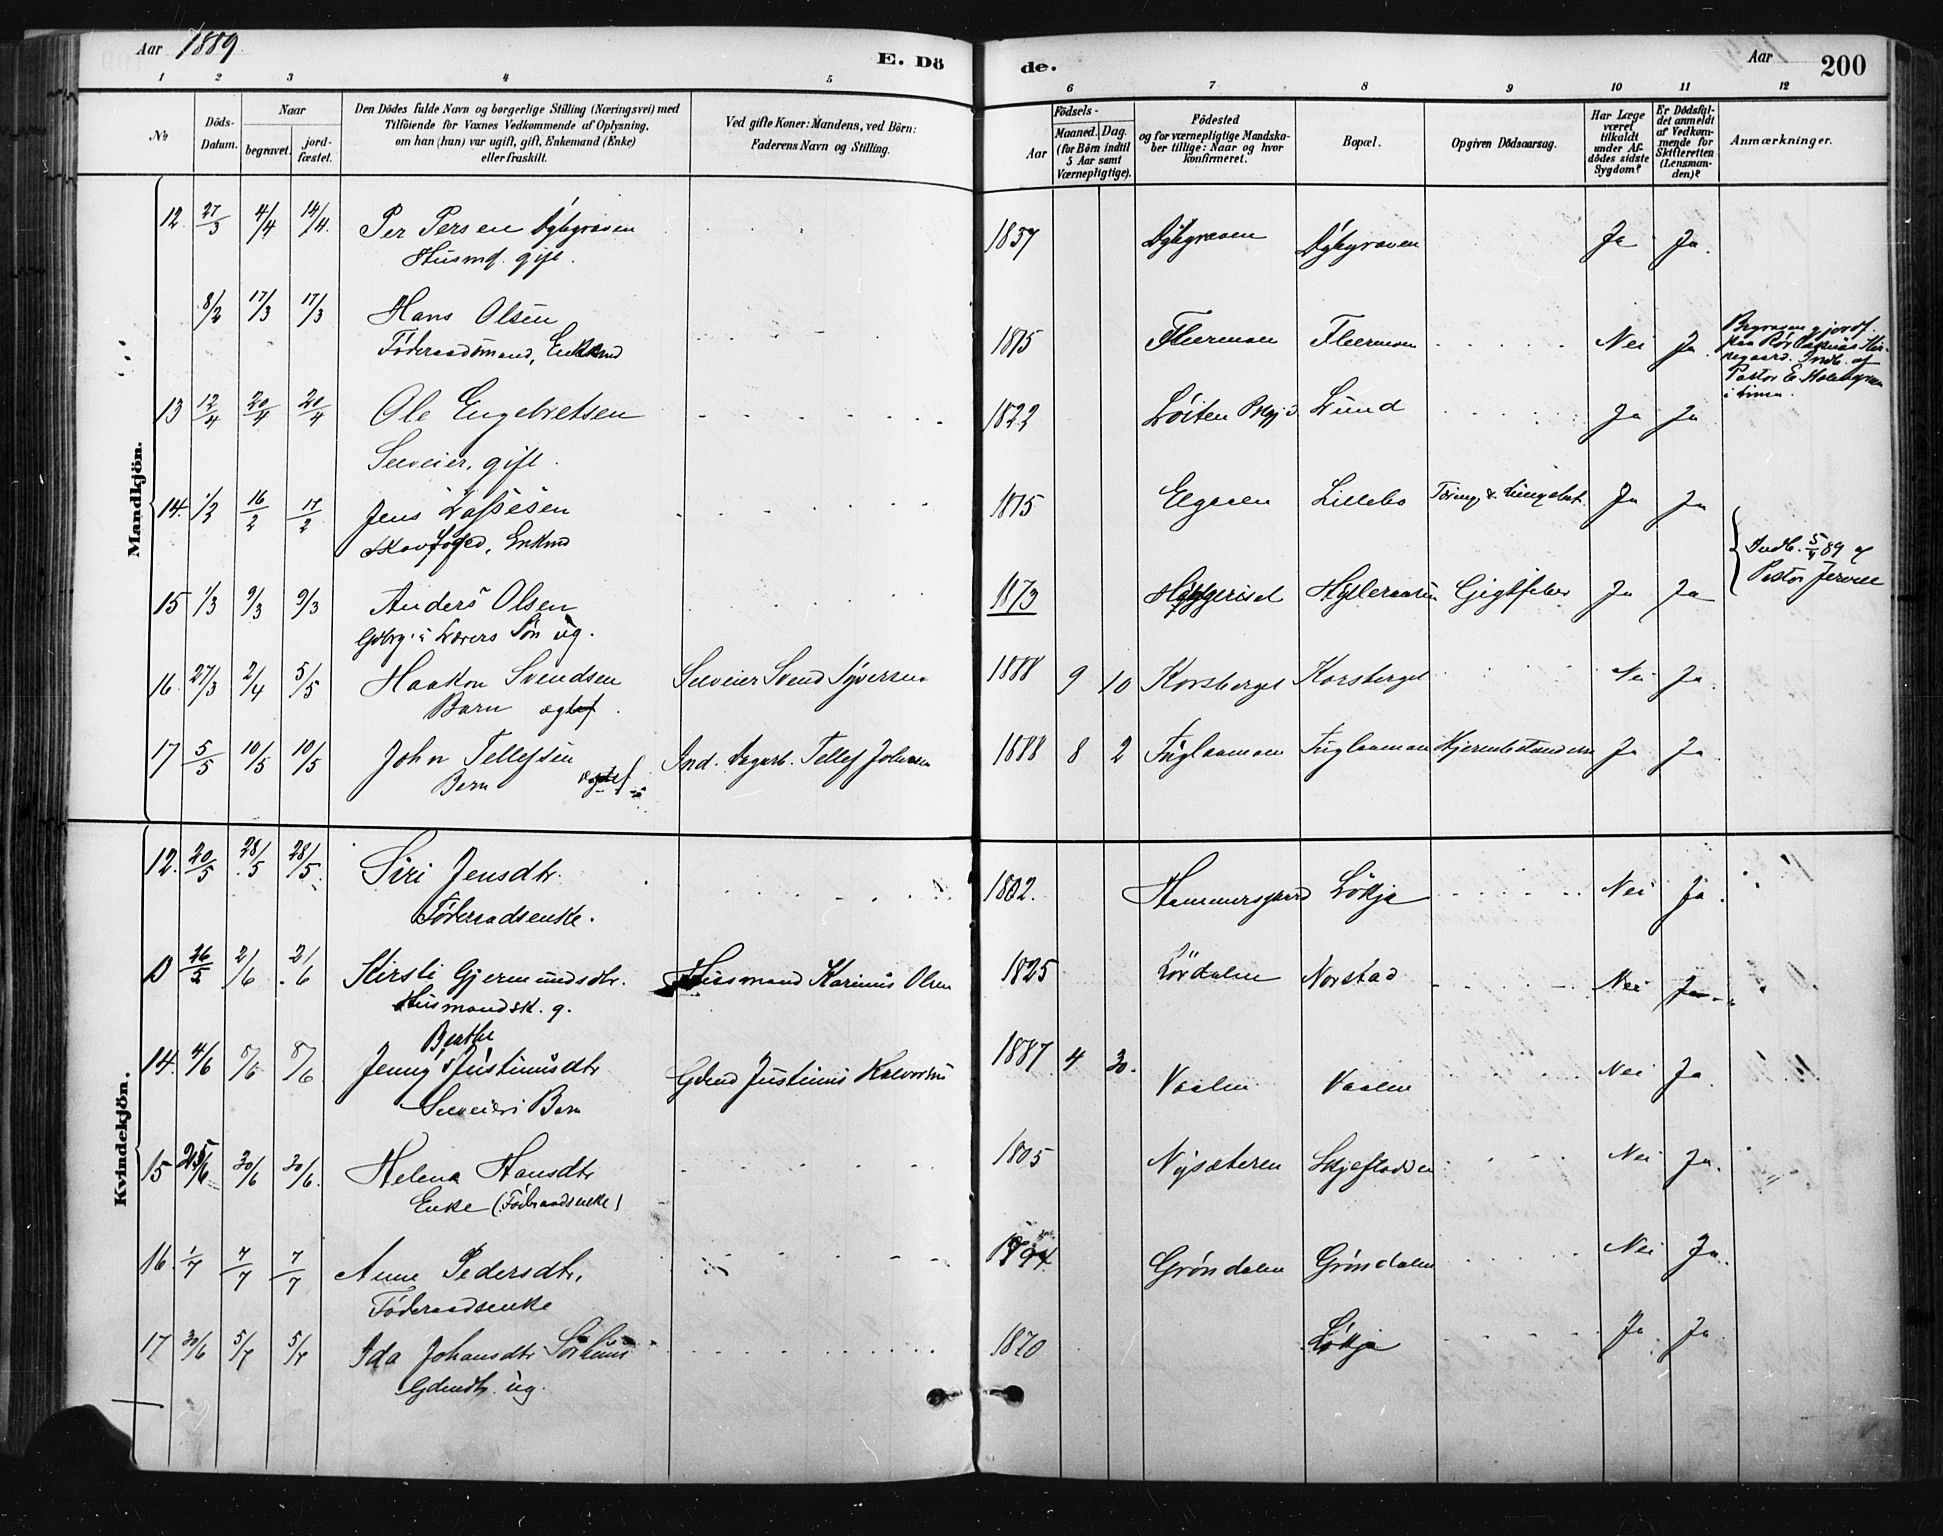 Aar 1889 E. Dö de. Aar 200
1 2 3 4 5 6 7 8 9 10 11 12
No
Döds-Datum.
Naar
begravet.
jord-fæstet.
Den Dödes fulde Navn og borgerlige Stilling (Næringsvei) med
Tilföiende for Voxnes Vedkommende af Oplysning,
om han (hun) var ugift, gift, Enkemand (Enke)
eller fraskilt.
Ved gifte Koner: Mandens, ved Börn:
Faderens Navn og Stilling.
Födsels-
Aar
Maaned. Dag.
(for Börn indtil
5 Aar samt
Værnepligtige).
Födested
og for værnepligtige Mandska-
ber tillige: Naar og hvor
konfirmeret.
Bopæl.
Opgiven Dödsaarsag.
Har Læge
været
tilkaldt
under Af-
dödes sidste
Sygdom?
Er Dödsfal-
det anmeldt
af Vedkom-
mende for
Skifteretten
(Lensman-
den)?
Anmærkninger.
Mandkjön.
12. 27/3 4/4 14/4. Per Persen Dybgraven 1837 Dybgraven Dybgraven Ja Ja.
Husmd. gift.
8/2 17/3 17/3 Hans Olsen 1815 Fleermoen Fleermoen Nei Ja
Föderaadsmand, Enkemd
13 12/4 20/4 20/4 Ole Engebretsen 1822 Löiten Lund Ja Ja
Selveier, gift.
14. 1/2 16/2 17/2 Jens Lassesen 1815 Elgaaen Lillebo Ja Ja
Skovfoged, Enkmd
Indb. 5/4 89 af
Pastor
15 1/3 9/3 9/3 Anders Olsen 1873 Gigtfeber Ja Ja
Sön ug.
16 27/3 2/4 5/5 Haakon Svendsen Selveier Svend Syversen 1888 9 10 Korsberget Korsberget Nei Ja.
Barn ægtef.
17 5/5 10/5 10/5 John Tellefsen Ind. Tellef Johnsen 1888 8 2 Fuglaamoen Fuglaamoen Hjernebetændelse Ja Ja
Barn ægtef.
Kvindekjön.
12. 20/5 28/5 28/5. Siri Jensdtr. 1802. Hammersgaard Lökja Nei Ja.
Föderaadsenke.
13 26/5 2/6 2/6 Kirsti Gjermundsdtr. Husmand Karinus Olsen 1825 Lördalen Norstad Nei Ja
Husmandsk. g.
Berthe
14. 4/6 8/6 8/6 Jenny Justinusdtr Gdmd Justinus 1887 4 30. Vaalen Vaalen Nei Ja.
Selveiers Barn
15 25/6 30/6 30/6. Helena Hansdtr 1805 Nysæteren Skjefladden Nei Ja.
Enke (Föderaadsenke)
16. 1/7 7/7 7/7 Anne Pedersdtr. 1794 Gröndalen Gröndalen Nei Ja.
Föderaadsenke
17 30/6 5/7 5/7 Ida Johansdtr Sörhuus 1870 Lökja Ja Ja.
Gdmdtr. ug.